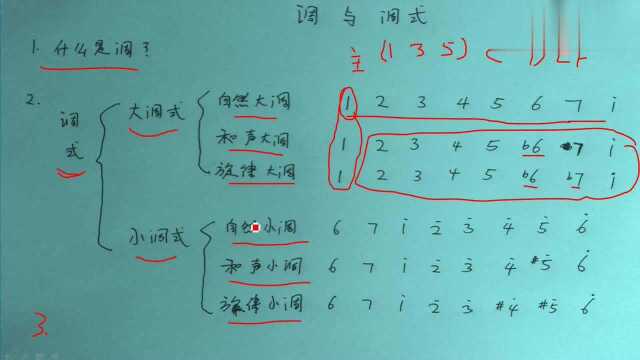 调与调式
1. 什么是调？
主 (1 3 5)
2.
调式
大调式
自然大调 1 2 3 4 5 6 7 i
和声大调 1 2 3 4 5 b6 7 i
旋律大调 1 2 3 4 5 b6 b7 i
小调式
自然小调 6 7 i 2̇ 3̇ 4̇ 5̇ 6̇
和声小调 6 7 i 2̇ 3̇ 4̇ #5̇ 6̇
旋律小调 6 7 i 2̇ 3̇ #4̇ #5̇ 6̇
3.